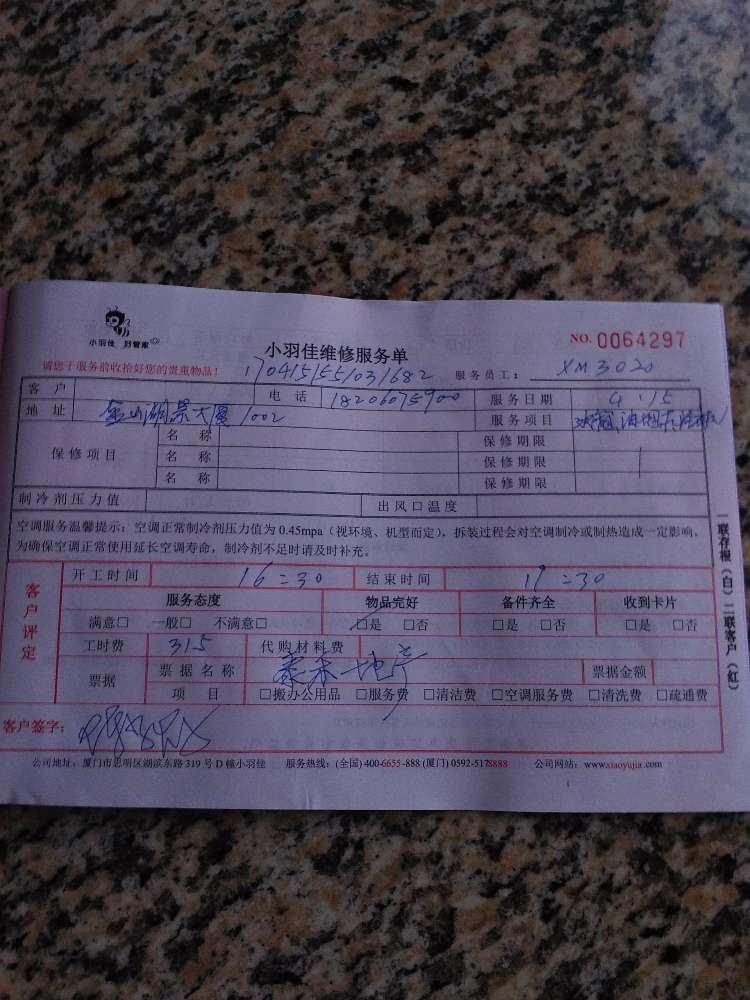 小羽佳 好管家
小羽佳维修服务单 NO. 0064297
请您于服务前收拾好您的贵重物品! 1704151551031682 服务员工: XM3020
客户 电话 18206075900 服务日期 4.15
地址 金山湖景大厦1002 服务项目
保修项目 名称 保修期限
名称 保修期限
名称 保修期限
制冷剂压力值 出风口温度
空调服务温馨提示:空调正常制冷剂压力值为 0.45mpa(视环境、机型而定),拆装过程会对空调制冷或制热造成一定影响,
为确保空调正常使用延长空调寿命,制冷剂不足时请及时补充。
客户评定 开工时间 16:30 结束时间 19:30
服务态度 物品完好 备件齐全 收到卡片
满意□ 一般□ 不满意□ □是 □否 □是 □否 □是 □否
工时费 315 代购材料费
票据 票据名称 泰禾地产 票据金额
项目 □搬办公用品 □服务费 □清洁费 □空调服务费 □清洗费 □疏通费
客户签字:
公司地址:厦门市思明区湖滨东路 319 号 D 幢小羽佳 服务热线:(全国) 400-6655-888 (厦门) 0592-5178888 公司网站:www.xiaoyujia.com
一联存根(白)二联客户(红)